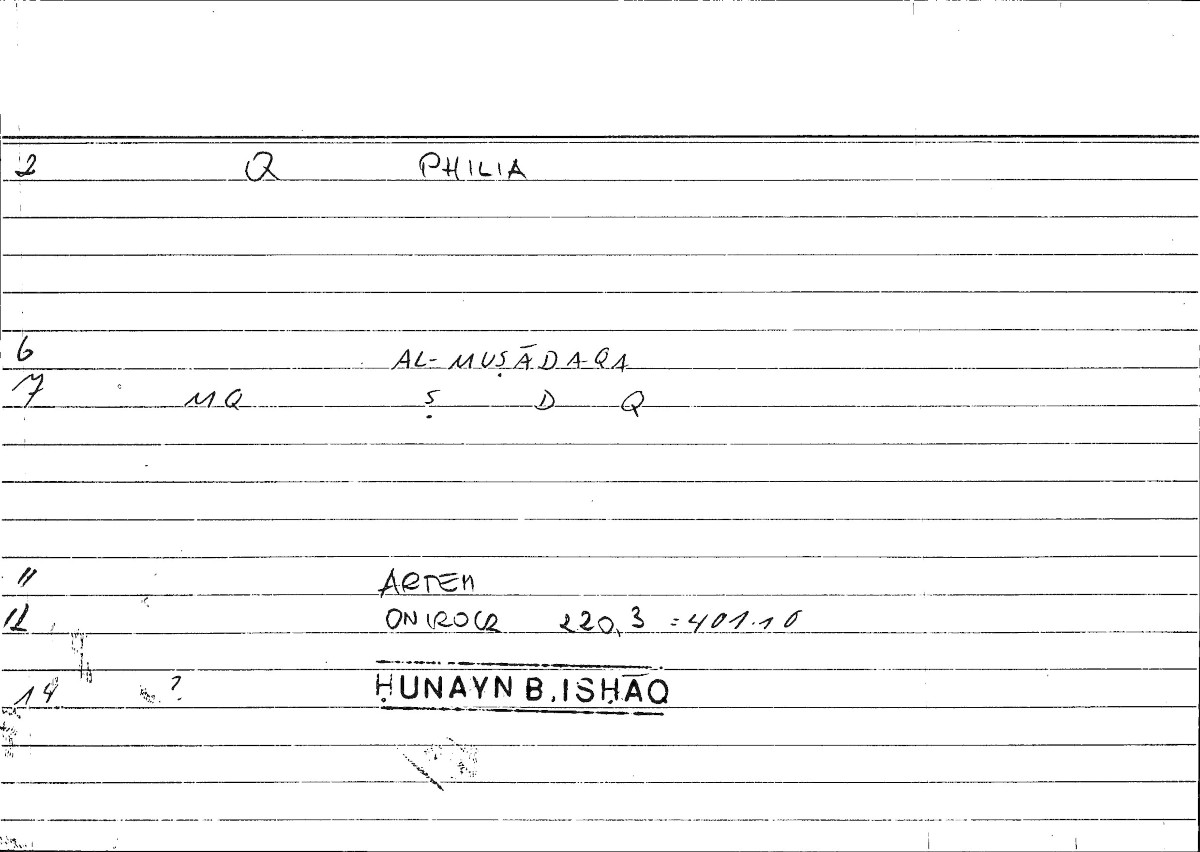 2 Q PHILIA
6 AL-MUṢĀDAQA
7 MQ Ṣ D Q
11 ARTEM
12 ONIROCR 220,3 =401.10
14 ? ḤUNAYN B. ISḤĀQ